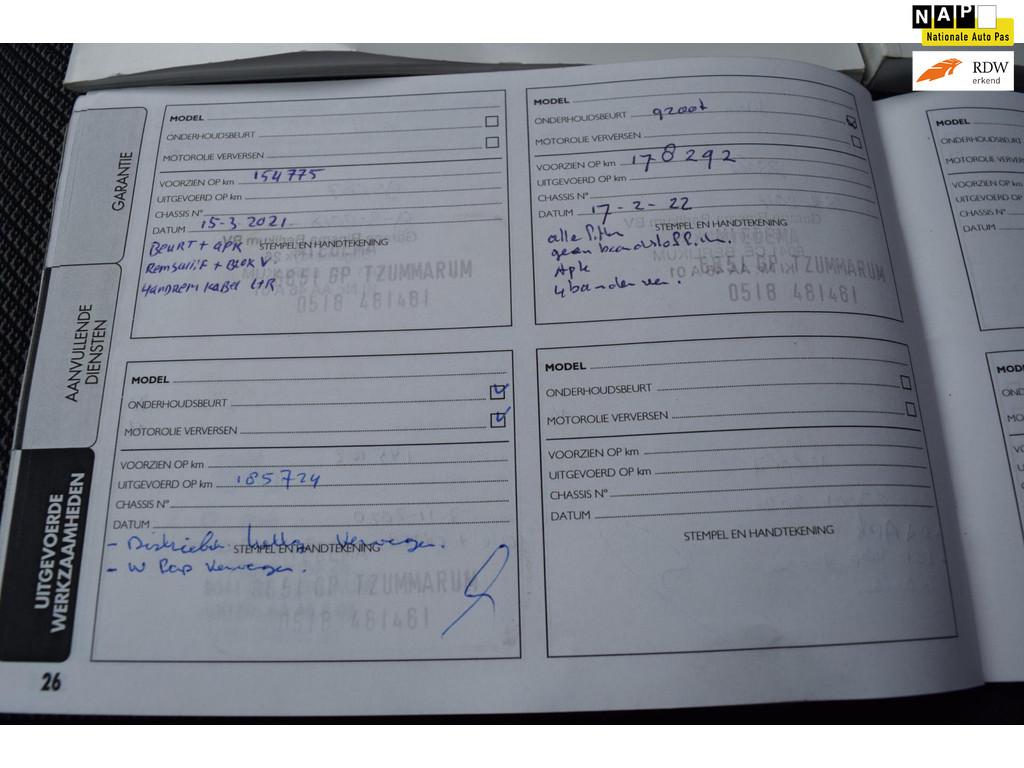 NAP
Nationale Auto Pas
RDW
erkend
GARANTIE
AANVULLENDE
DIENSTEN
UITGEVOERDE
WERKZAAMHEDEN
26
MODEL
ONDERHOUDSBEURT
MOTOROLIE VERVERSEN
VOORZIEN OP km 154775
UITGEVOERD OP km
CHASSIS N°
DATUM 15-3-2021
STEMPEL EN HANDTEKENING
BEURT + APK
REMSCHIJF + BLOK V.
HANDREM KABEL L+R
8851 GP TZUMMARUM
0518 481461
MODEL
ONDERHOUDSBEURT groot
MOTOROLIE VERVERSEN
VOORZIEN OP km 178292
UITGEVOERD OP km
CHASSIS N°
DATUM 17-2-22
STEMPEL EN HANDTEKENING
alle filters
geen brandstoffilter.
Apk
4 banden ver.
8851 GP TZUMMARUM
0518 481461
MODEL
ONDERHOUDSBEURT
MOTOROLIE VERVERSEN
VOORZIEN OP km
UITGEVOERD OP km 185724
CHASSIS N°
DATUM
STEMPEL EN HANDTEKENING
- Distributie Vervangen.
- W Pomp Vervangen.
8851 GP TZUMMARUM
0518 481461
MODEL
ONDERHOUDSBEURT
MOTOROLIE VERVERSEN
VOORZIEN OP km
UITGEVOERD OP km
CHASSIS N°
DATUM
STEMPEL EN HANDTEKENING
MODEL
ONDERHOUDSBEURT
MOTOROLIE VERVERSEN
VOORZIEN OP km
UITGEVOERD OP
CHASSIS N°
DATUM